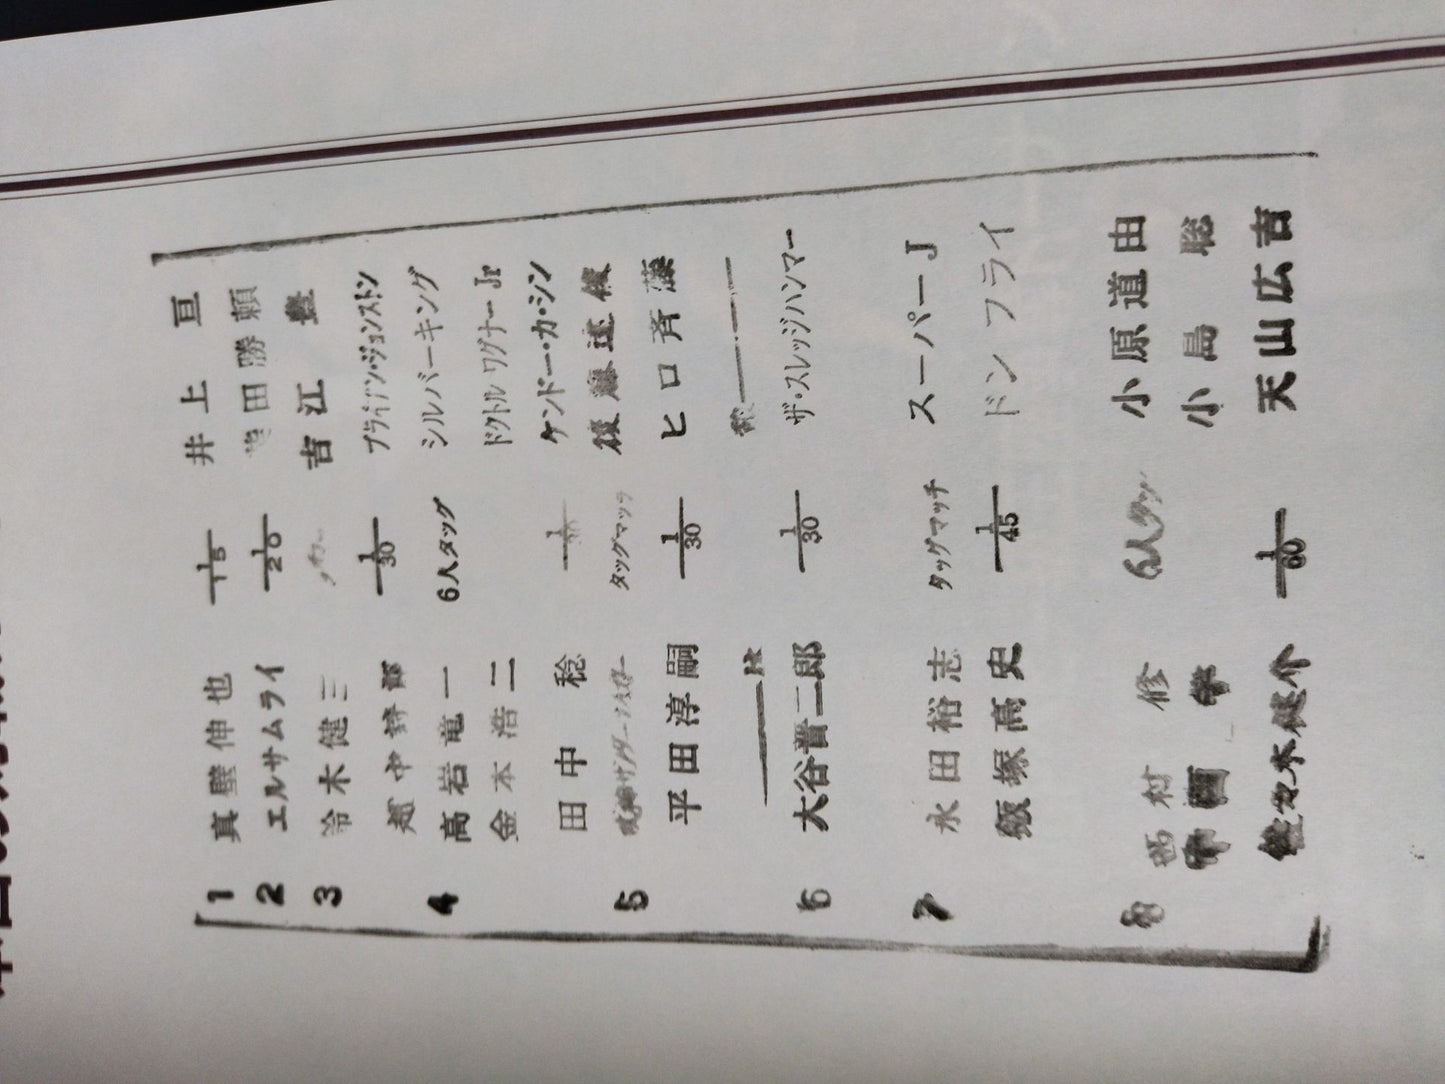 1 真壁伸也 1/15 井上亘
2 エルサムライ 1/20 田勝頼
3 鈴木健三 吉江豊
越中詩郎 1/30 ブライアン・ジョンストン
4 高岩竜一 6人タッグ シルバーキング
金本浩二 ドクトルワグナーJr
田中稔 ケンドー・カ・シン
5 タッグマッチ 後藤達俊
平田淳嗣 1/30 ヒロ斉藤
6 大谷晋二郎 1/30 ザ・スレッジハンマー
7 永田裕志 タッグマッチ スーパーJ
飯塚高史 1/45 ドンフライ
8 西村修 6人タッグ 小原道由
小島聡
佐々木健介 1/60 天山広吉